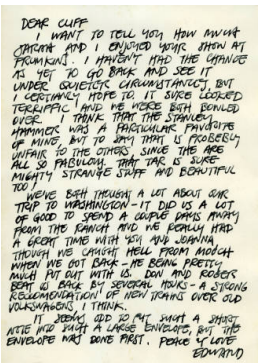 DEAR CLIFF
I WANT TO TELL YOU HOW MUCH
AND I ENJOYED YOUR SHOW AT
FRUMKINS. I HAVEN'T HAD THE CHANCE
AS YET TO GO BACK AND SEE IT
UNDER QUIETER CIRCUMSTANCES, BUT
I CERTAINLY HOPE TO. IT SURE LOOKED
TERRIFFIC AND WE WERE BOTH BOWLED
OVER. I THINK THAT THE STANLEY
HAMMER WAS A PARTICULAR FAVORITE
OF MINE BUT TO SAY THAT IS PROBERLY
UNFAIR TO THE OTHERS, SINCE THE ARE
ALL SO FABULOUS. THAT TAR IS SURE
MIGHTY STRANGE STUFF AND BEAUTIFUL
TOO.
WE'VE BOTH THOUGHT A LOT ABOUT OUR
TRIP TO WASHINGTON - IT DID US A LOT
OF GOOD TO SPEND A COUPLE DAYS AWAY
FROM THE RANCH AND WE REALLY HAD
A GREAT TIME WITH YOU AND JOANNA,
THOUGH WE CAUGHT HELL FROM MOOCH
WHEN WE GOT BACK - HE BEING PRETTY
MUCH PUT OUT WITH US. DON AND ROGER
BEAT US BACK BY SEVERAL HOURS - A STRONG
RECOMENDATION OF NEW TRAINS OVER OLD
VOLKSWAGENS I THINK.
IT SEEMS ODD TO PUT SUCH A SHORT
NOTE INTO SUCH A LARGE ENVELOPE, BUT THE
ENVELOPE WAS DONE FIRST. PEACE & LOVE
EDMUND